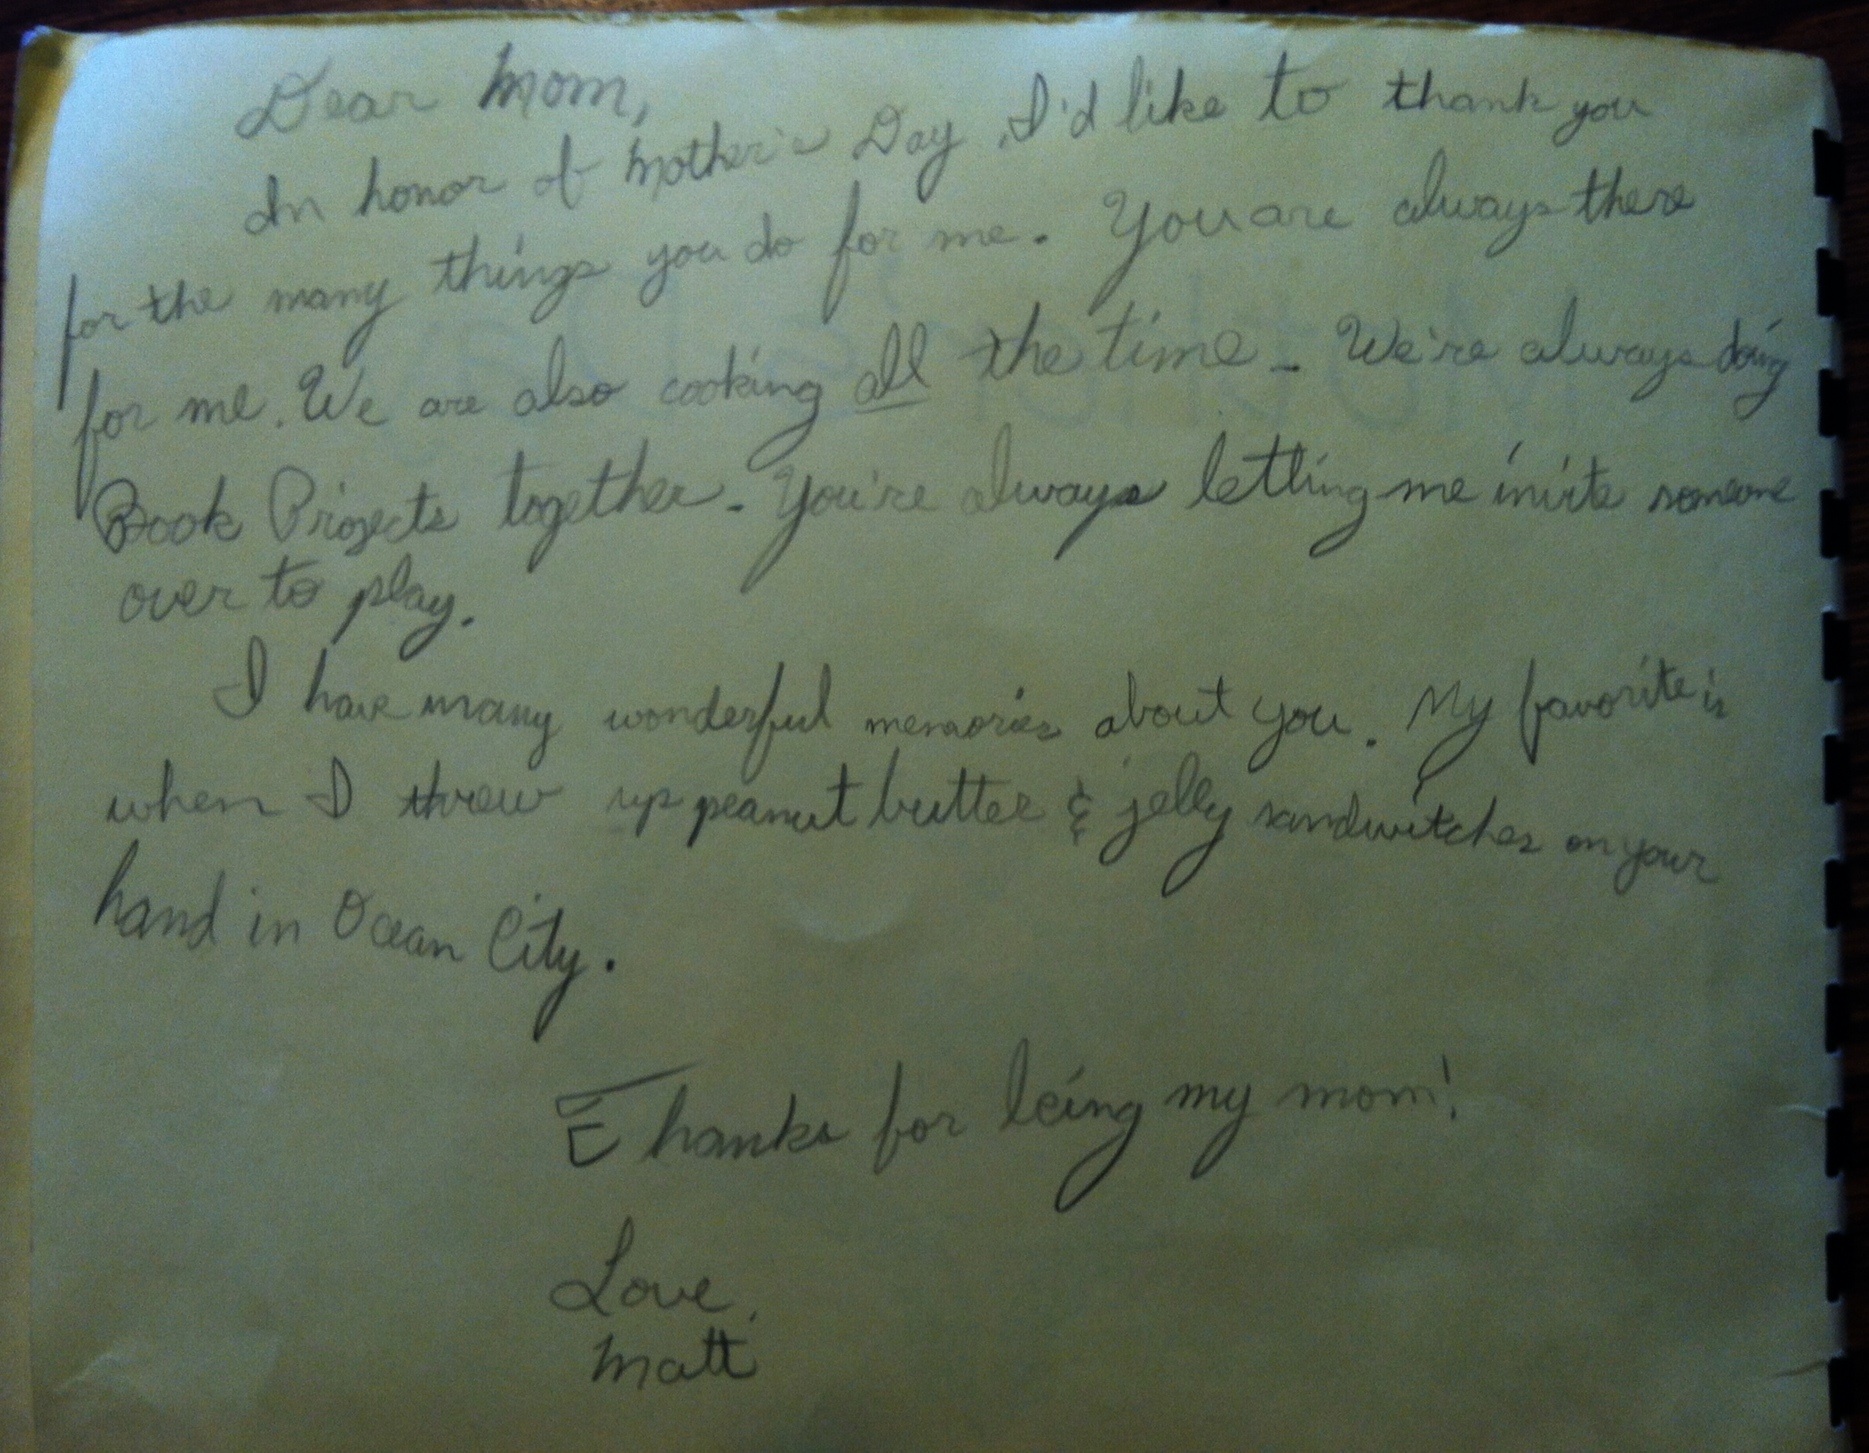 Dear Mom,
In honor of Mother's Day, I'd like to thank you
for the many things you do for me. You are always there
for me. We are also cooking all the time. We're always doing
Book Projects together. You're always letting me invite someone
over to play.
I have many wonderful memories about you. My favorite is
when I threw up peanut butter & jelly sandwitches on your
hand in Ocean City.
Thanks for being my mom!
Love,
Matt